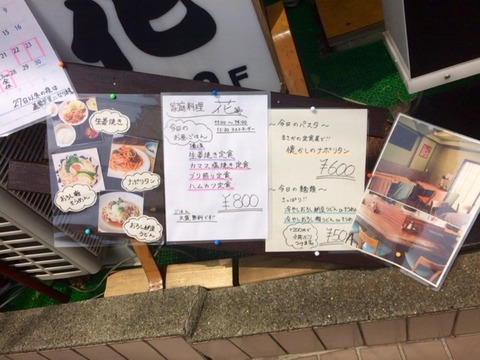 花
27日以降の夜は
生姜焼き
ナポリタン
おろし納豆
うどん
家庭料理 花
11:00〜14:00
13:30 ラストオーダー
今日の
お昼ごはん
生姜焼き定食
カマス塩焼き定食
ブリ照り定食
ハムカツ定食
¥800
ごはん
大盛無料です!
〜今日のパスタ〜
まさかの定食屋で!!
懐かしのナポリタン
¥600
〜今日の麺類〜
さっぱり!!
冷やしおろし納豆
冷やしおろし
+200円で
小鉢
つきます
750